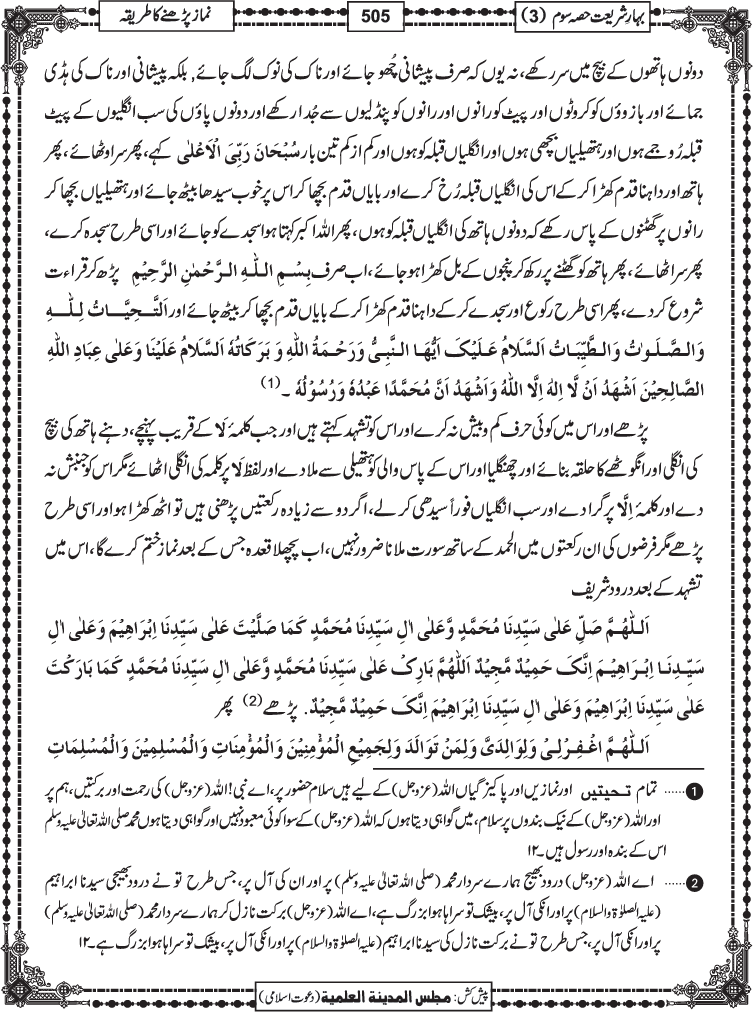 بہارِ شریعت حصہ سوم (3)
505
نماز پڑھنے کا طریقہ
دونوں ہاتھوں کے بیچ میں سر رکھے، نہ یوں کہ صرف پیشانی چُھو جائے اور ناک کی نوک لگ جائے, بلکہ پیشانی اور ناک کی ہڈی
جمائے اور بازوؤں کو کروٹوں اور پیٹ کو رانوں اور رانوں کو پنڈلیوں سے جُدا رکھے اور دونوں پاؤں کی سب انگلیوں کے پیٹ
قبلہ رُو جمے ہوں اور ہتھیلیاں بچھی ہوں اور انگلیاں قبلہ کو ہوں اور کم از کم تین بار سُبْحَانَ رَبِّیَ الْاَعْلٰی کہے، پھر سر اوٹھائے، پھر
ہاتھ اور داہنا قدم کھڑا کر کے اس کی انگلیاں قبلہ رُخ کرے اور بایاں قدم بچھا کر اس پر خوب سیدھا بیٹھ جائے اور ہتھیلیاں بچھا کر
رانوں پر گھٹنوں کے پاس رکھے کہ دونوں ہاتھ کی انگلیاں قبلہ کو ہوں، پھر اللہ اکبر کہتا ہوا سجدے کو جائے اور اسی طرح سجدہ کرے،
پھر سر اٹھائے، پھر ہاتھ کو گھٹنے پر رکھ کر پنجوں کے بل کھڑا ہو جائے، اب صرف بِسْمِ اللہِ الرَّحْمٰنِ الرَّحِیْمِ پڑھ کر قراءت
شروع کر دے، پھر اسی طرح رکوع اور سجدے کر کے داہنا قدم کھڑا کر کے بایاں قدم بچھا کر بیٹھ جائے اور اَلتَّحِیَّاتُ لِلّٰہِ
وَالصَّلَوٰتُ وَالطَّیِّبَاتُ اَلسَّلَامُ عَلَیْکَ اَیُّھَا النَّبِیُّ وَرَحْمَۃُ اللہِ وَ بَرَکَاتُہٗ اَلسَّلَامُ عَلَیْنَا وَعَلٰی عِبَادِ اللہِ
الصَّالِحِیْنَ اَشْھَدُ اَنْ لَّا اِلٰہَ اِلَّا اللہُ وَاَشْھَدُ اَنَّ مُحَمَّدًا عَبْدُہٗ وَرَسُوْلُہٗ ۔(1)
پڑھے اور اس میں کوئی حرف کم و بیش نہ کرے اور اس کو تشہد کہتے ہیں اور جب کلمۂ لَا کے قریب پہنچے، دہنے ہاتھ کی بیچ
کی انگلی اور انگوٹھے کا حلقہ بنائے اور چھنگلیا اور اس کے پاس والی کو ہتھیلی سے ملا دے اور لفظ لَا پر کلمہ کی انگلی اٹھائے مگر اس کو جنبش نہ
دے اور کلمۂ اِلَّا پر گرا دے اور سب انگلیاں فوراً سیدھی کر لے، اگر دو سے زیادہ رکعتیں پڑھنی ہیں تو اٹھ کھڑا ہو اور اسی طرح
پڑھے مگر فرضوں کی ان رکعتوں میں الحمد کے ساتھ سورت ملانا ضرور نہیں، اب پچھلا قعدہ جس کے بعد نماز ختم کرے گا، اس میں
تشہد کے بعد درود شریف
اَللّٰھُمَّ صَلِّ عَلٰی سَیِّدِنَا مُحَمَّدٍ وَّعَلٰی اٰلِ سَیِّدِنَا مُحَمَّدٍ کَمَا صَلَّیْتَ عَلٰی سَیِّدِنَا اِبْرَاھِیْمَ وَعَلٰی اٰلِ
سَیِّدِنَا اِبْرَاھِیْمَ اِنَّکَ حَمِیْدٌ مَّجِیْدٌ اَللّٰھُمَّ بَارِکْ عَلٰی سَیِّدِنَا مُحَمَّدٍ وَّعَلٰی اٰلِ سَیِّدِنَا مُحَمَّدٍ کَمَا بَارَکْتَ
عَلٰی سَیِّدِنَا اِبْرَاھِیْمَ وَعَلٰی اٰلِ سَیِّدِنَا اِبْرَاھِیْمَ اِنَّکَ حَمِیْدٌ مَّجِیْدٌ. پڑھے(2) پھر
اَللّٰھُمَّ اغْفِرْلِیْ وَلِوَالِدَیَّ وَلِمَنْ تَوَالَدَ وَلِجَمِیْعِ الْمُؤْمِنِیْنَ وَالْمُؤْمِنَاتِ وَالْمُسْلِمِیْنَ وَالْمُسْلِمَاتِ
❶...... تمام تحیتیں اور نمازیں اور پاکیزگیاں اللہ (عزوجل) کے لیے ہیں سلام حضور پر، اے نبی! اللہ (عزوجل) کی رحمت اور برکتیں، ہم پر
اور اللہ (عزوجل) کے نیک بندوں پر سلام، میں گواہی دیتا ہوں کہ اللہ (عزوجل) کے سوا کوئی معبود نہیں اور گواہی دیتا ہوں محمد صلی اللہ تعالیٰ علیہ وسلم
اس کے بندہ اور رسول ہیں۔ ۱۲
❷...... اے اللہ (عزوجل) درود بھیج ہمارے سردار محمد (صلی اللہ تعالیٰ علیہ وسلم) پر اور ان کی آل پر، جس طرح تو نے درود بھیجی سیدنا ابراہیم
(علیہ الصلوۃ والسلام) پر اور انکی آل پر، بیشک تو سراہا ہوا بزرگ ہے، اے اللہ (عزوجل) برکت نازل کر ہمارے سردار محمد (صلی اللہ تعالیٰ علیہ وسلم)
پر اور انکی آل پر، جس طرح تو نے برکت نازل کی سیدنا ابراہیم (علیہ الصلوۃ والسلام) پر اور انکی آل پر، بیشک تو سراہا ہوا بزرگ ہے۔ ۱۲
پیش کش: مجلس المدینۃ العلمیۃ (دعوت اسلامی)